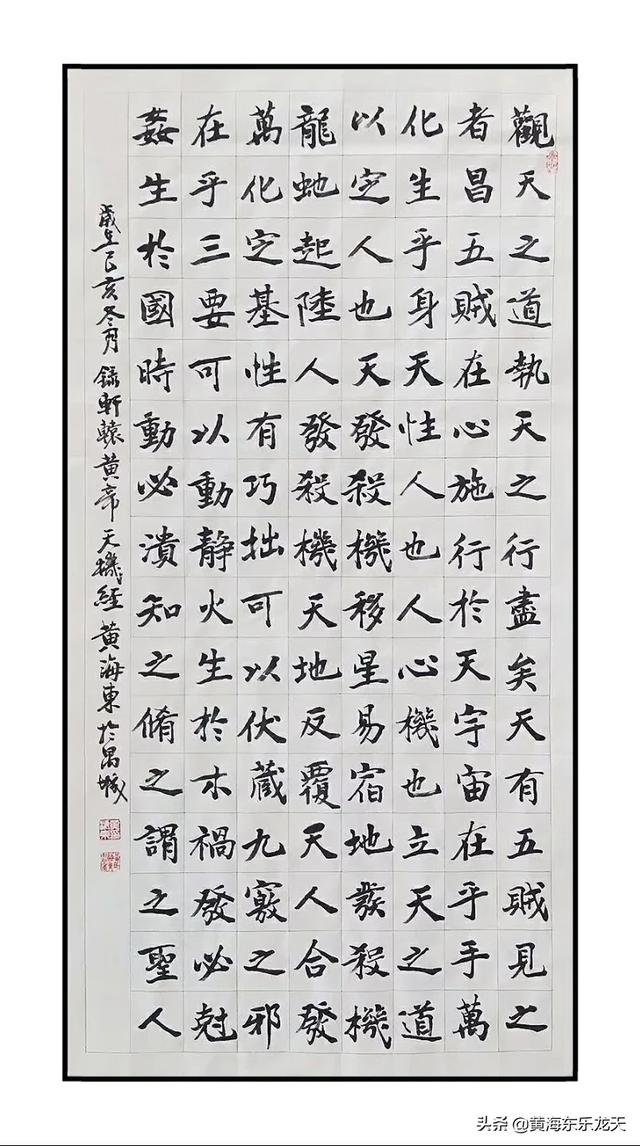 觀天之道執天之行盡矣天有五賊見之
者昌五賊在心施行於天宇宙在乎手萬
化生乎身天性人也人心機也立天之道
以定人也天發殺機移星易宿地發殺機
龍虵起陸人發殺機天地反覆天人合發
萬化定基性有巧拙可以伏藏九竅之邪
在乎三要可以動静火生於木禍發必尅
姦生於國時動必潰知之脩之謂之聖人
歲在己亥冬月錄軒轅黄帝天機經黄海東於禺城
头条@黄海东乐龙天